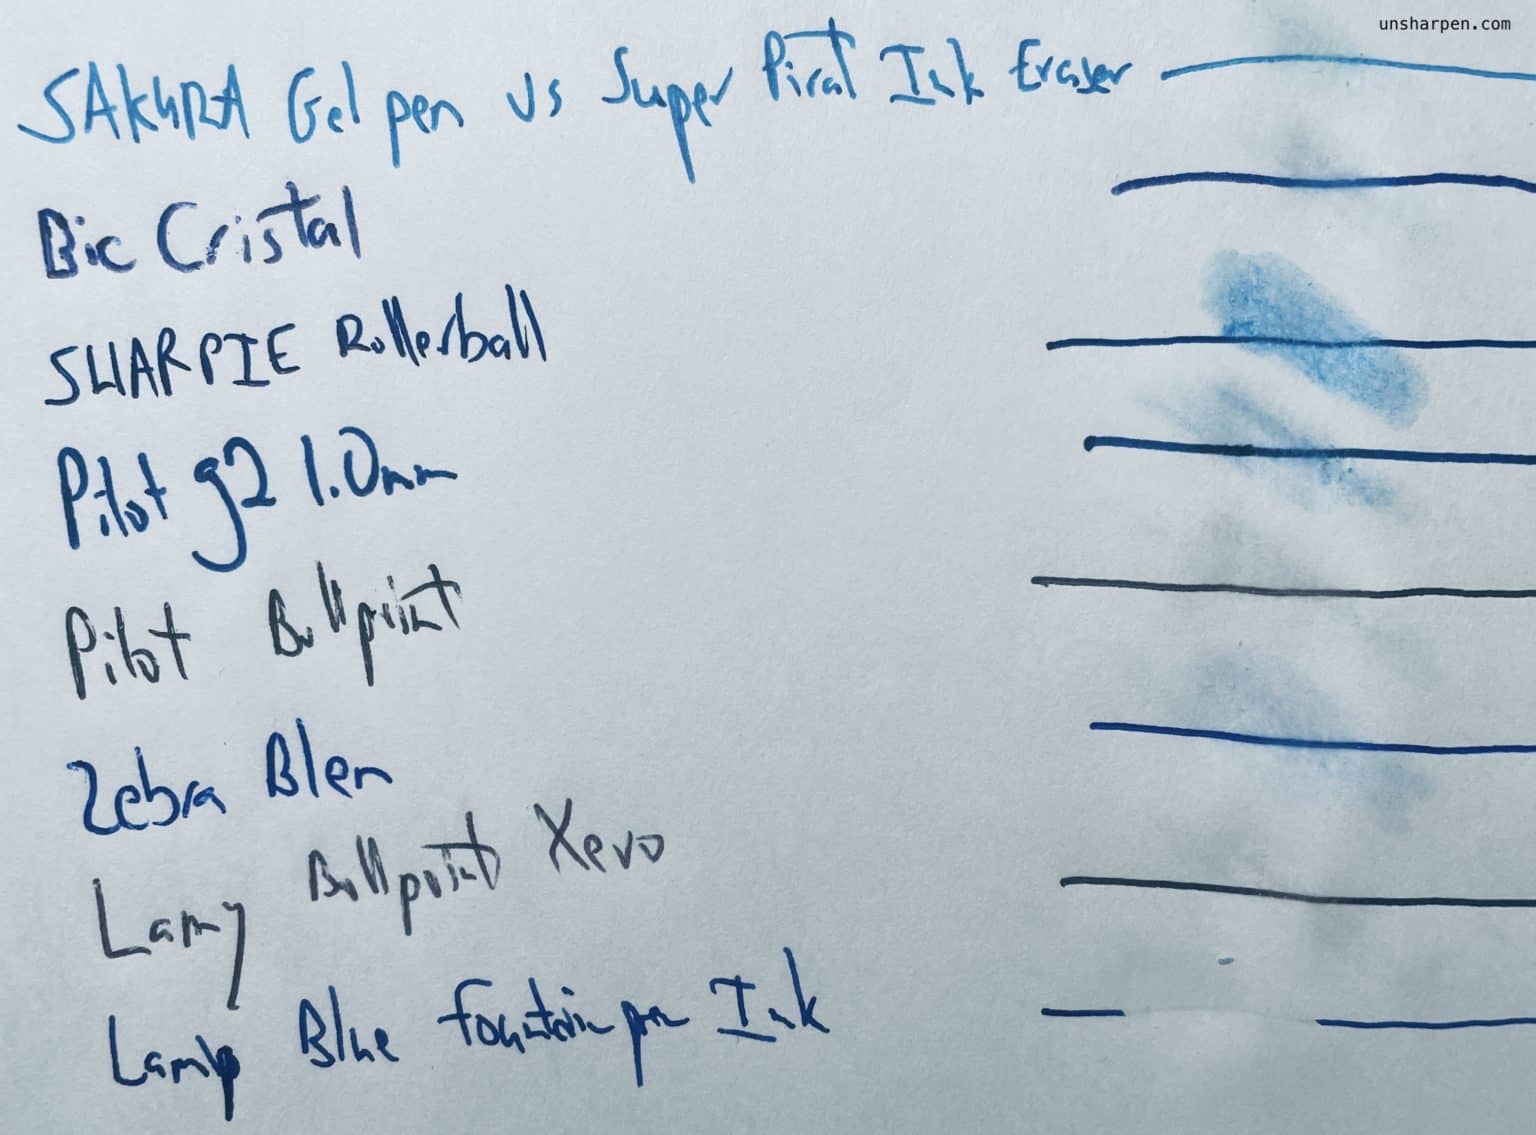 unsharpen.com
SAKURA Gel pen vs Super Pirat Ink Eraser
Bic Cristal
SHARPIE Rollerball
Pilot g2 1.0mm
Pilot Ballpoint
Zebra Blen
Lamy Ballpoint Xevo
Lamy Blue fountain pen Ink